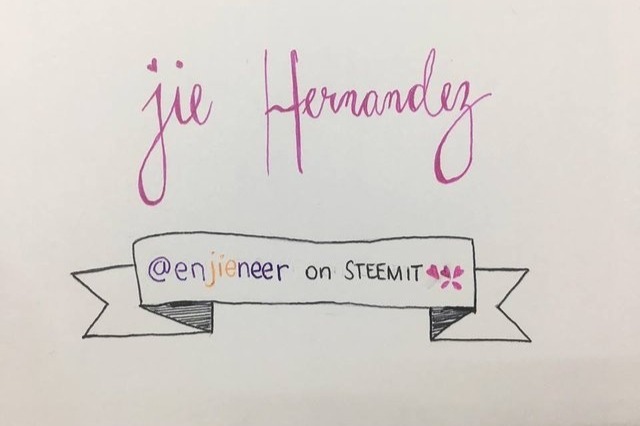 jie Hernandez
@enjieneer on STEEMIT